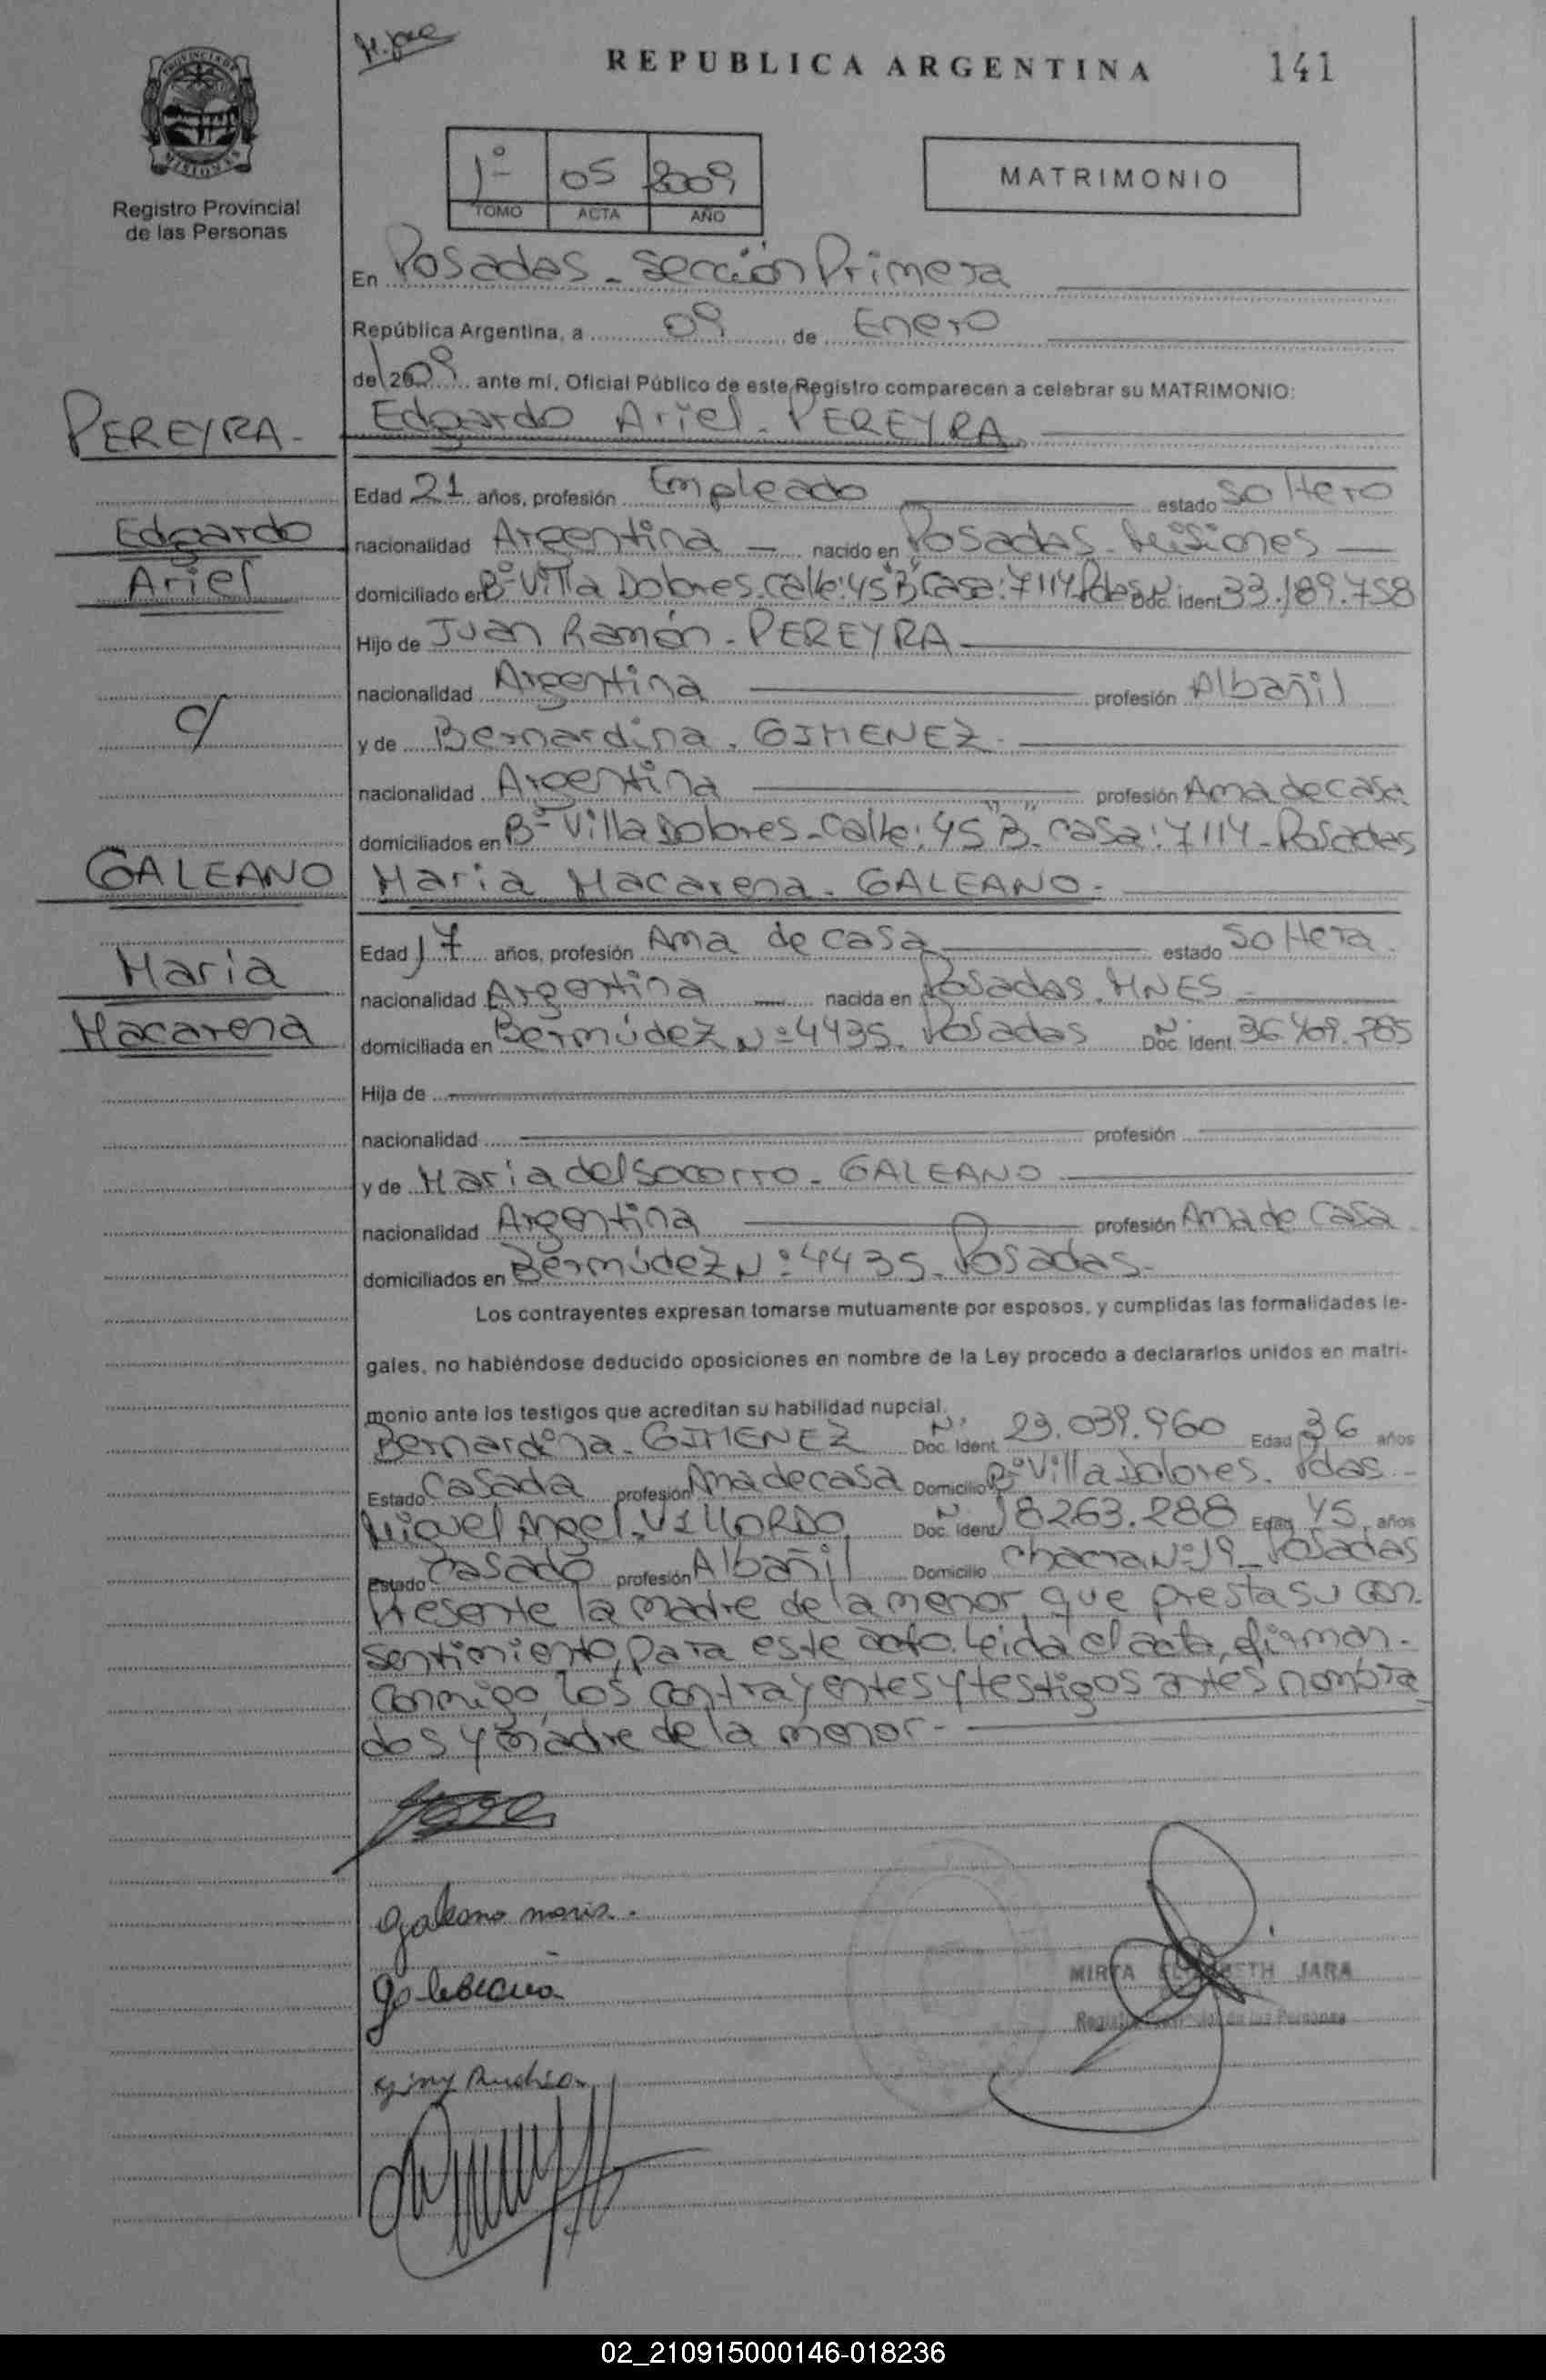 REPUBLICA ARGENTINA 141
PROVINCIA DE MISIONES
Registro Provincial
de las Personas
1º 05 2009
TOMO ACTA AÑO
MATRIMONIO
En Posadas - Sección Primera
República Argentina, a 09 de Enero
del 2009 ante mí, Oficial Público de este Registro comparecen a celebrar su MATRIMONIO:
PEREYRA-
Edgardo Ariel - PEREYRA
Edad 21 años, profesión Empleado estado Soltero
Edgardo
nacionalidad Argentina — nacido en Posadas - Misiones —
Ariel
domiciliado en Bº Villa Dolores - Calle: 45 "B" Casa: 7114 Pdas Nº Doc. Ident. 33.189.758
Hijo de Juan Ramón - PEREYRA
nacionalidad Argentina profesión Albañil
c/
y de Bernardina. GIMENEZ -
nacionalidad Argentina profesión Ama de casa
domiciliados en Bº Villa Dolores - Calle: 45 "B" - casa: 7114 - Posadas
GALEANO
Maria Macarena - GALEANO -
Edad 17 años, profesión Ama de casa estado Soltera
Maria
nacionalidad Argentina — nacida en Posadas. MNES -
Macarena
domiciliada en Bermúdez Nº 4435. Posadas Nº Doc. Ident. 36.409.285
Hija de
nacionalidad profesión
y de Maria del Socorro - GALEANO
nacionalidad Argentina profesión Ama de Casa
domiciliados en Bermúdez Nº 4435 - Posadas -
Los contrayentes expresan tomarse mutuamente por esposos, y cumplidas las formalidades le-
gales, no habiéndose deducido oposiciones en nombre de la Ley procedo a declararlos unidos en matri-
monio ante los testigos que acreditan su habilidad nupcial.
Bernardina - GIMENEZ Nº Doc. Ident. 23.039.960 Edad 36 años
Estado Casada profesión Ama de casa Domicilio Bº Villa Dolores. Pdas -
Miguel Angel - VILLORDO Nº Doc. Ident. 18263.288 Edad 45 años
Estado Casado profesión Albañil Domicilio Chacra Nº 19 - Posadas
Presente la madre de la menor, que presta su con-
sentimiento, para este acto. Leida el acta, firman -
conmigo, los contrayentes y testigos antes nombra
dos y madre de la menor -
Galeano maria.
MIRTA ELIZABETH JARA
Registro Provincial de las Personas
02_210915000146-018236